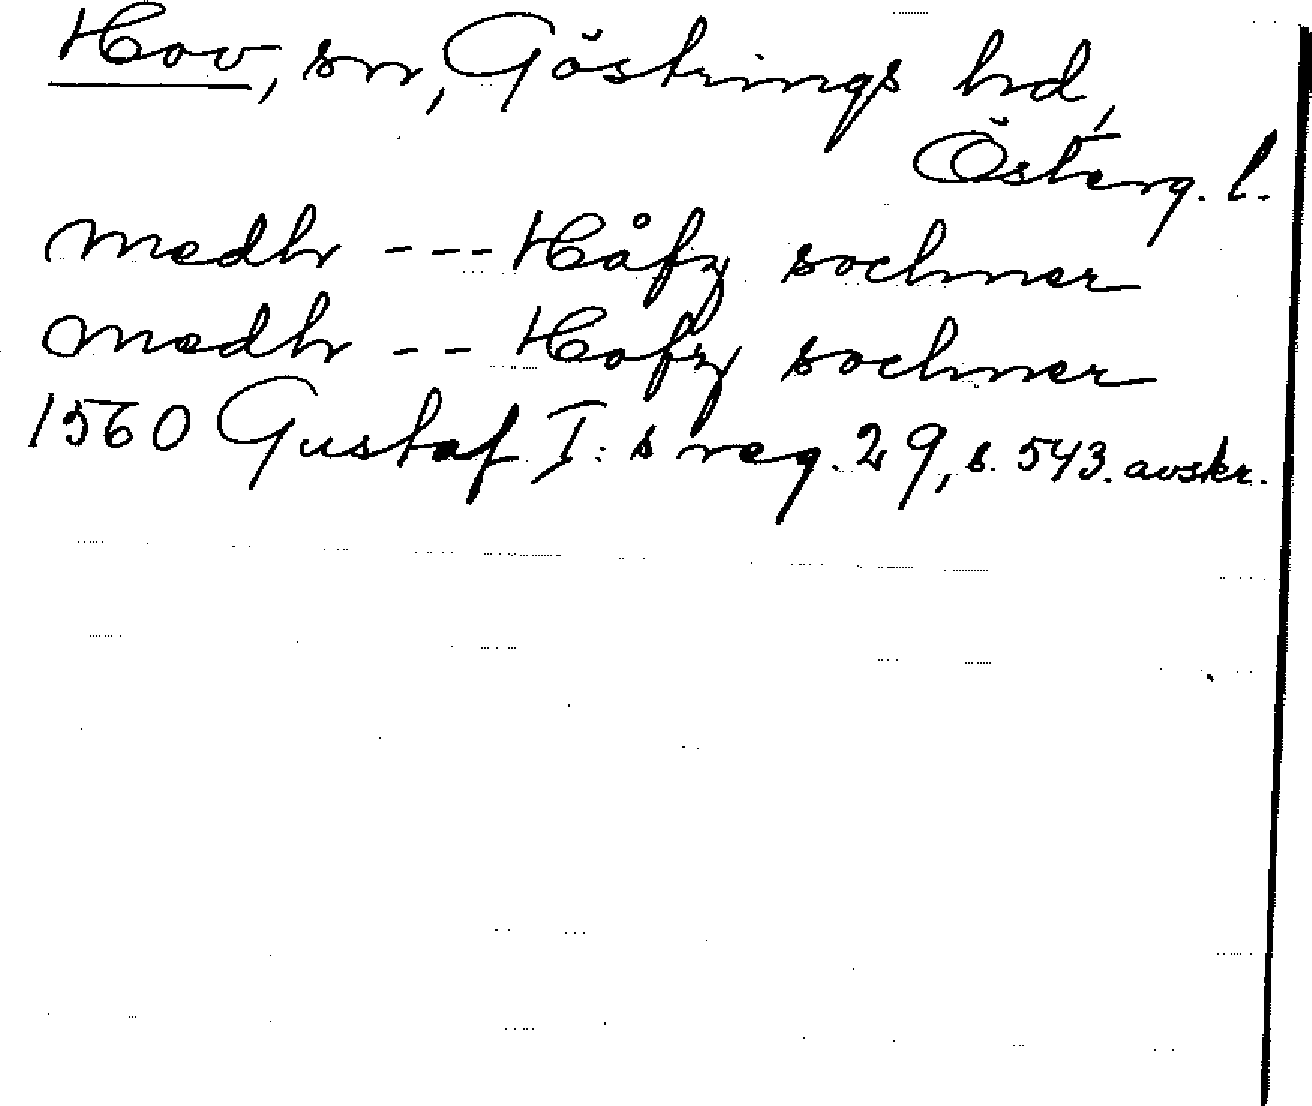 Hov, sn, Göstrings hd,
Österg. l.
medh --- Håfz sochner
medh -- Hofz sochner
1560 Gustaf I:s reg. 29, s. 543. avskr.